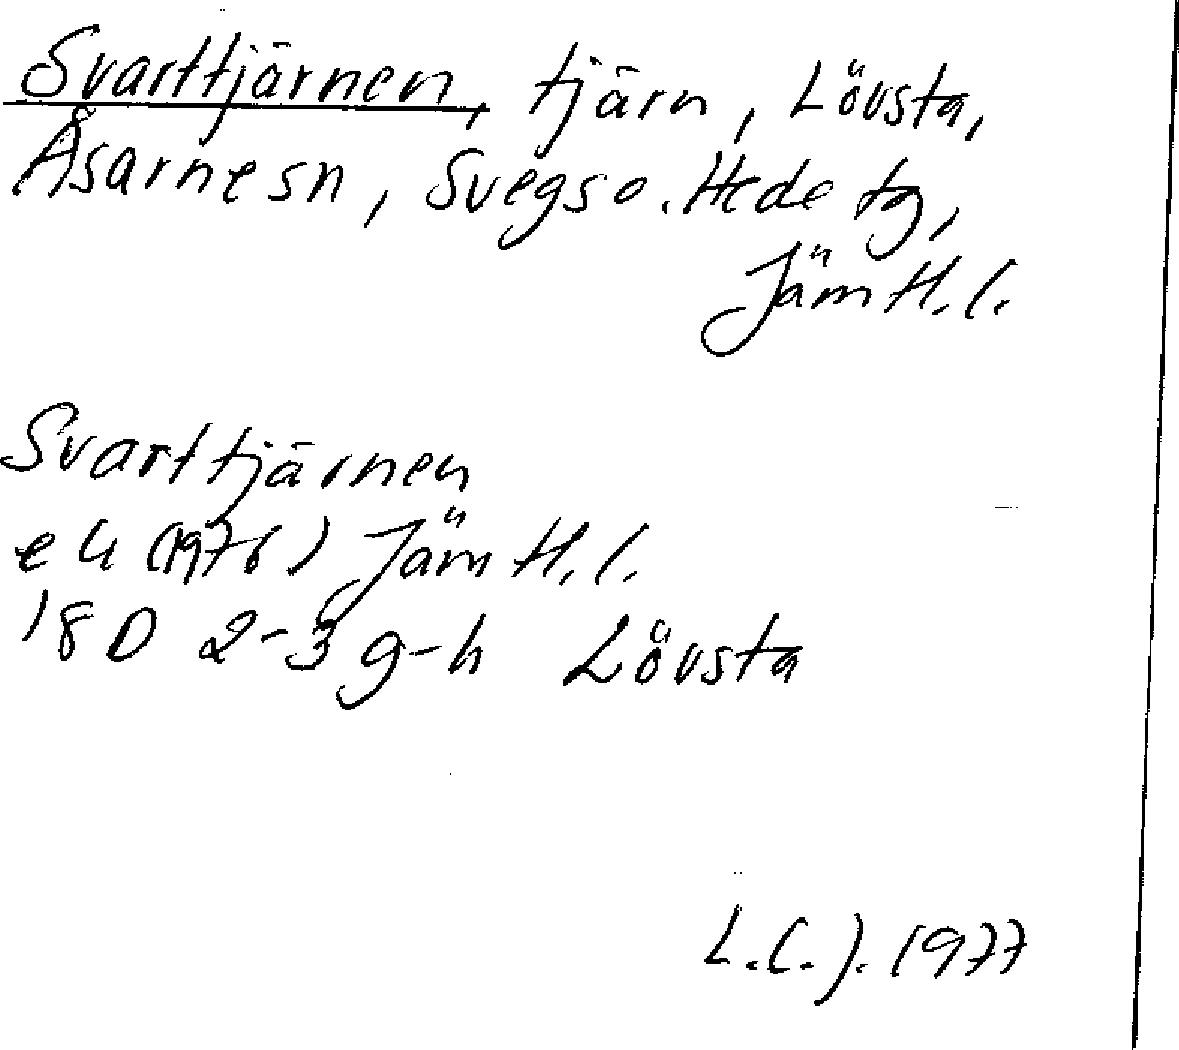 Svarttjärnen, tjärn, Lövsta,
Åsarne sn, Svegs o. Hede tg,
Jämtl. l.
Svarttjärnen
ek (1976) Jämtl. l.
18D 2-3 g-h Lövsta
L.C.J. 1977